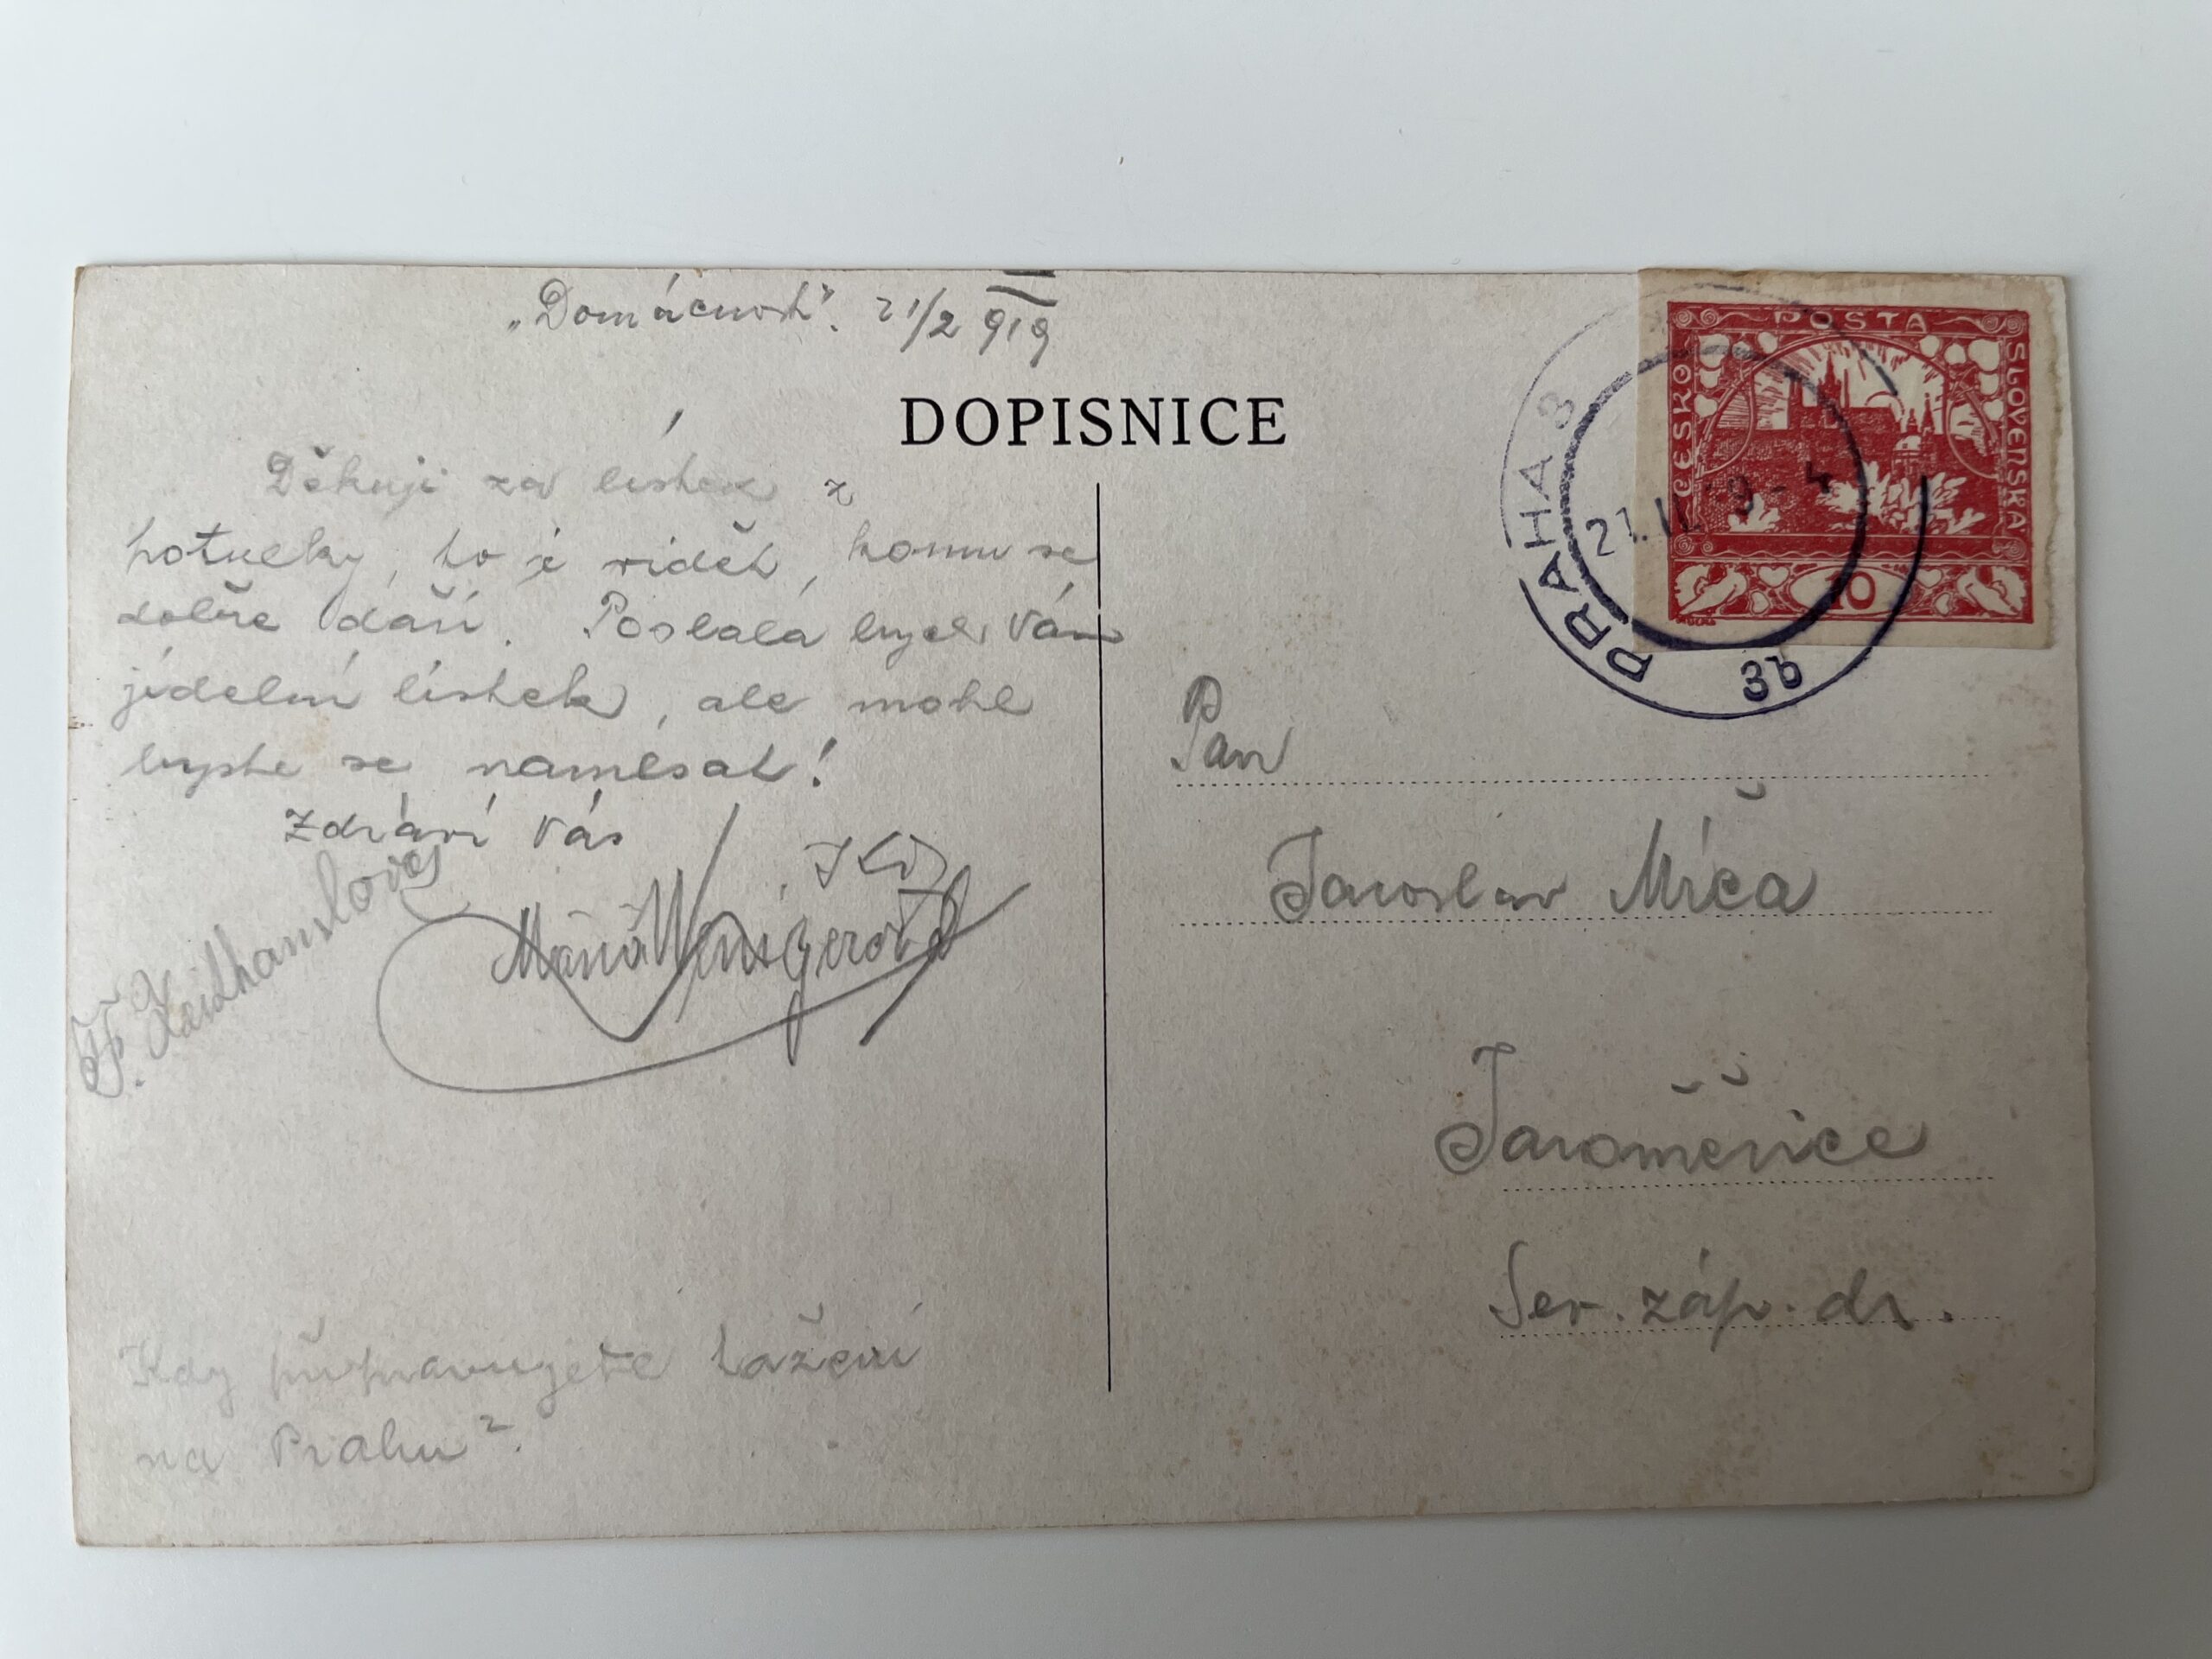 „Domácnost“. 21/2 919
DOPISNICE
Děkuji za lístek z
hostiny, to je vidět, komu se
dobře daří. Poslala bych Vám
jídelní lístek, ale mohl
byste se namlsat!
Zdraví Vás
Máňa
Kdy připravujete tažení
na Prahu?
POŠTA
ČESKO
SLOVENSKÁ
10
PRAHA 3
21.II.19-4
3b
Pan
Jaroslav Míča
Jaroměřice
Sev. záp. dr.